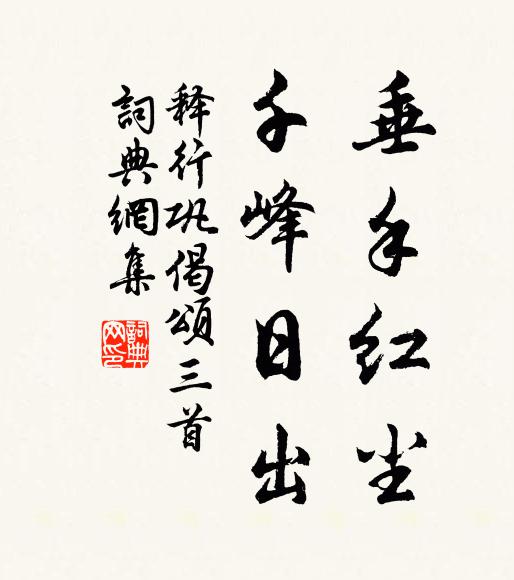 垂手红尘
千峰日出
释行巩偈頌三首
詞典網集
詞典网印